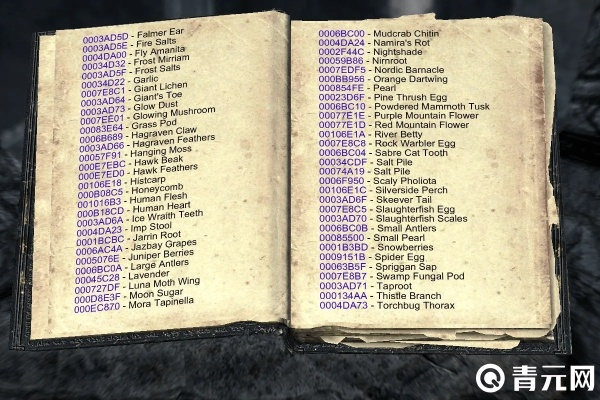 0003AD5D - Falmer Ear
0003AD5E - Fire Salts
0004DA00 - Fly Amanita
00034D32 - Frost Mirriam
0003AD5F - Frost Salts
00034D22 - Garlic
0007E8C1 - Giant Lichen
0003AD64 - Giant's Toe
0003AD73 - Glow Dust
0007EE01 - Glowing Mushroom
00083E64 - Grass Pod
0006B689 - Hagraven Claw
0003AD66 - Hagraven Feathers
00057F91 - Hanging Moss
000E7EBC - Hawk Beak
000E7ED0 - Hawk Feathers
00106E18 - Histcarp
000B08C5 - Honeycomb
001016B3 - Human Flesh
000B18CD - Human Heart
0003AD6A - Ice Wraith Teeth
0004DA23 - Imp Stool
0001BCBC - Jarrin Root
0006AC4A - Jazbay Grapes
0005076E - Juniper Berries
0006BC0A - Large Antlers
00045C28 - Lavender
000727DF - Luna Moth Wing
000D8E3F - Moon Sugar
000EC870 - Mora Tapinella
0006BC00 - Mudcrab Chitin
0004DA24 - Namira's Rot
0002F44C - Nightshade
00059B86 - Nirnroot
0007EDF5 - Nordic Barnacle
000BB956 - Orange Dartwing
000854FE - Pearl
00023D6F - Pine Thrush Egg
0006BC10 - Powdered Mammoth Tusk
00077E1E - Purple Mountain Flower
00077E1D - Red Mountain Flower
00106E1A - River Betty
0007E8C8 - Rock Warbler Egg
0006BC04 - Sabre Cat Tooth
00034CDF - Salt Pile
00074A19 - Salt Pile
0006F950 - Scaly Pholiota
00106E1C - Silverside Perch
0003AD6F - Skeever Tail
0007E8C5 - Slaughterfish Egg
0003AD70 - Slaughterfish Scales
0006BC0B - Small Antlers
00085500 - Small Pearl
0001B3BD - Snowberries
0009151B - Spider Egg
00063B5F - Spriggan Sap
0007E8B7 - Swamp Fungal Pod
0003AD71 - Taproot
000134AA - Thistle Branch
0004DA73 - Torchbug Thorax
青元网